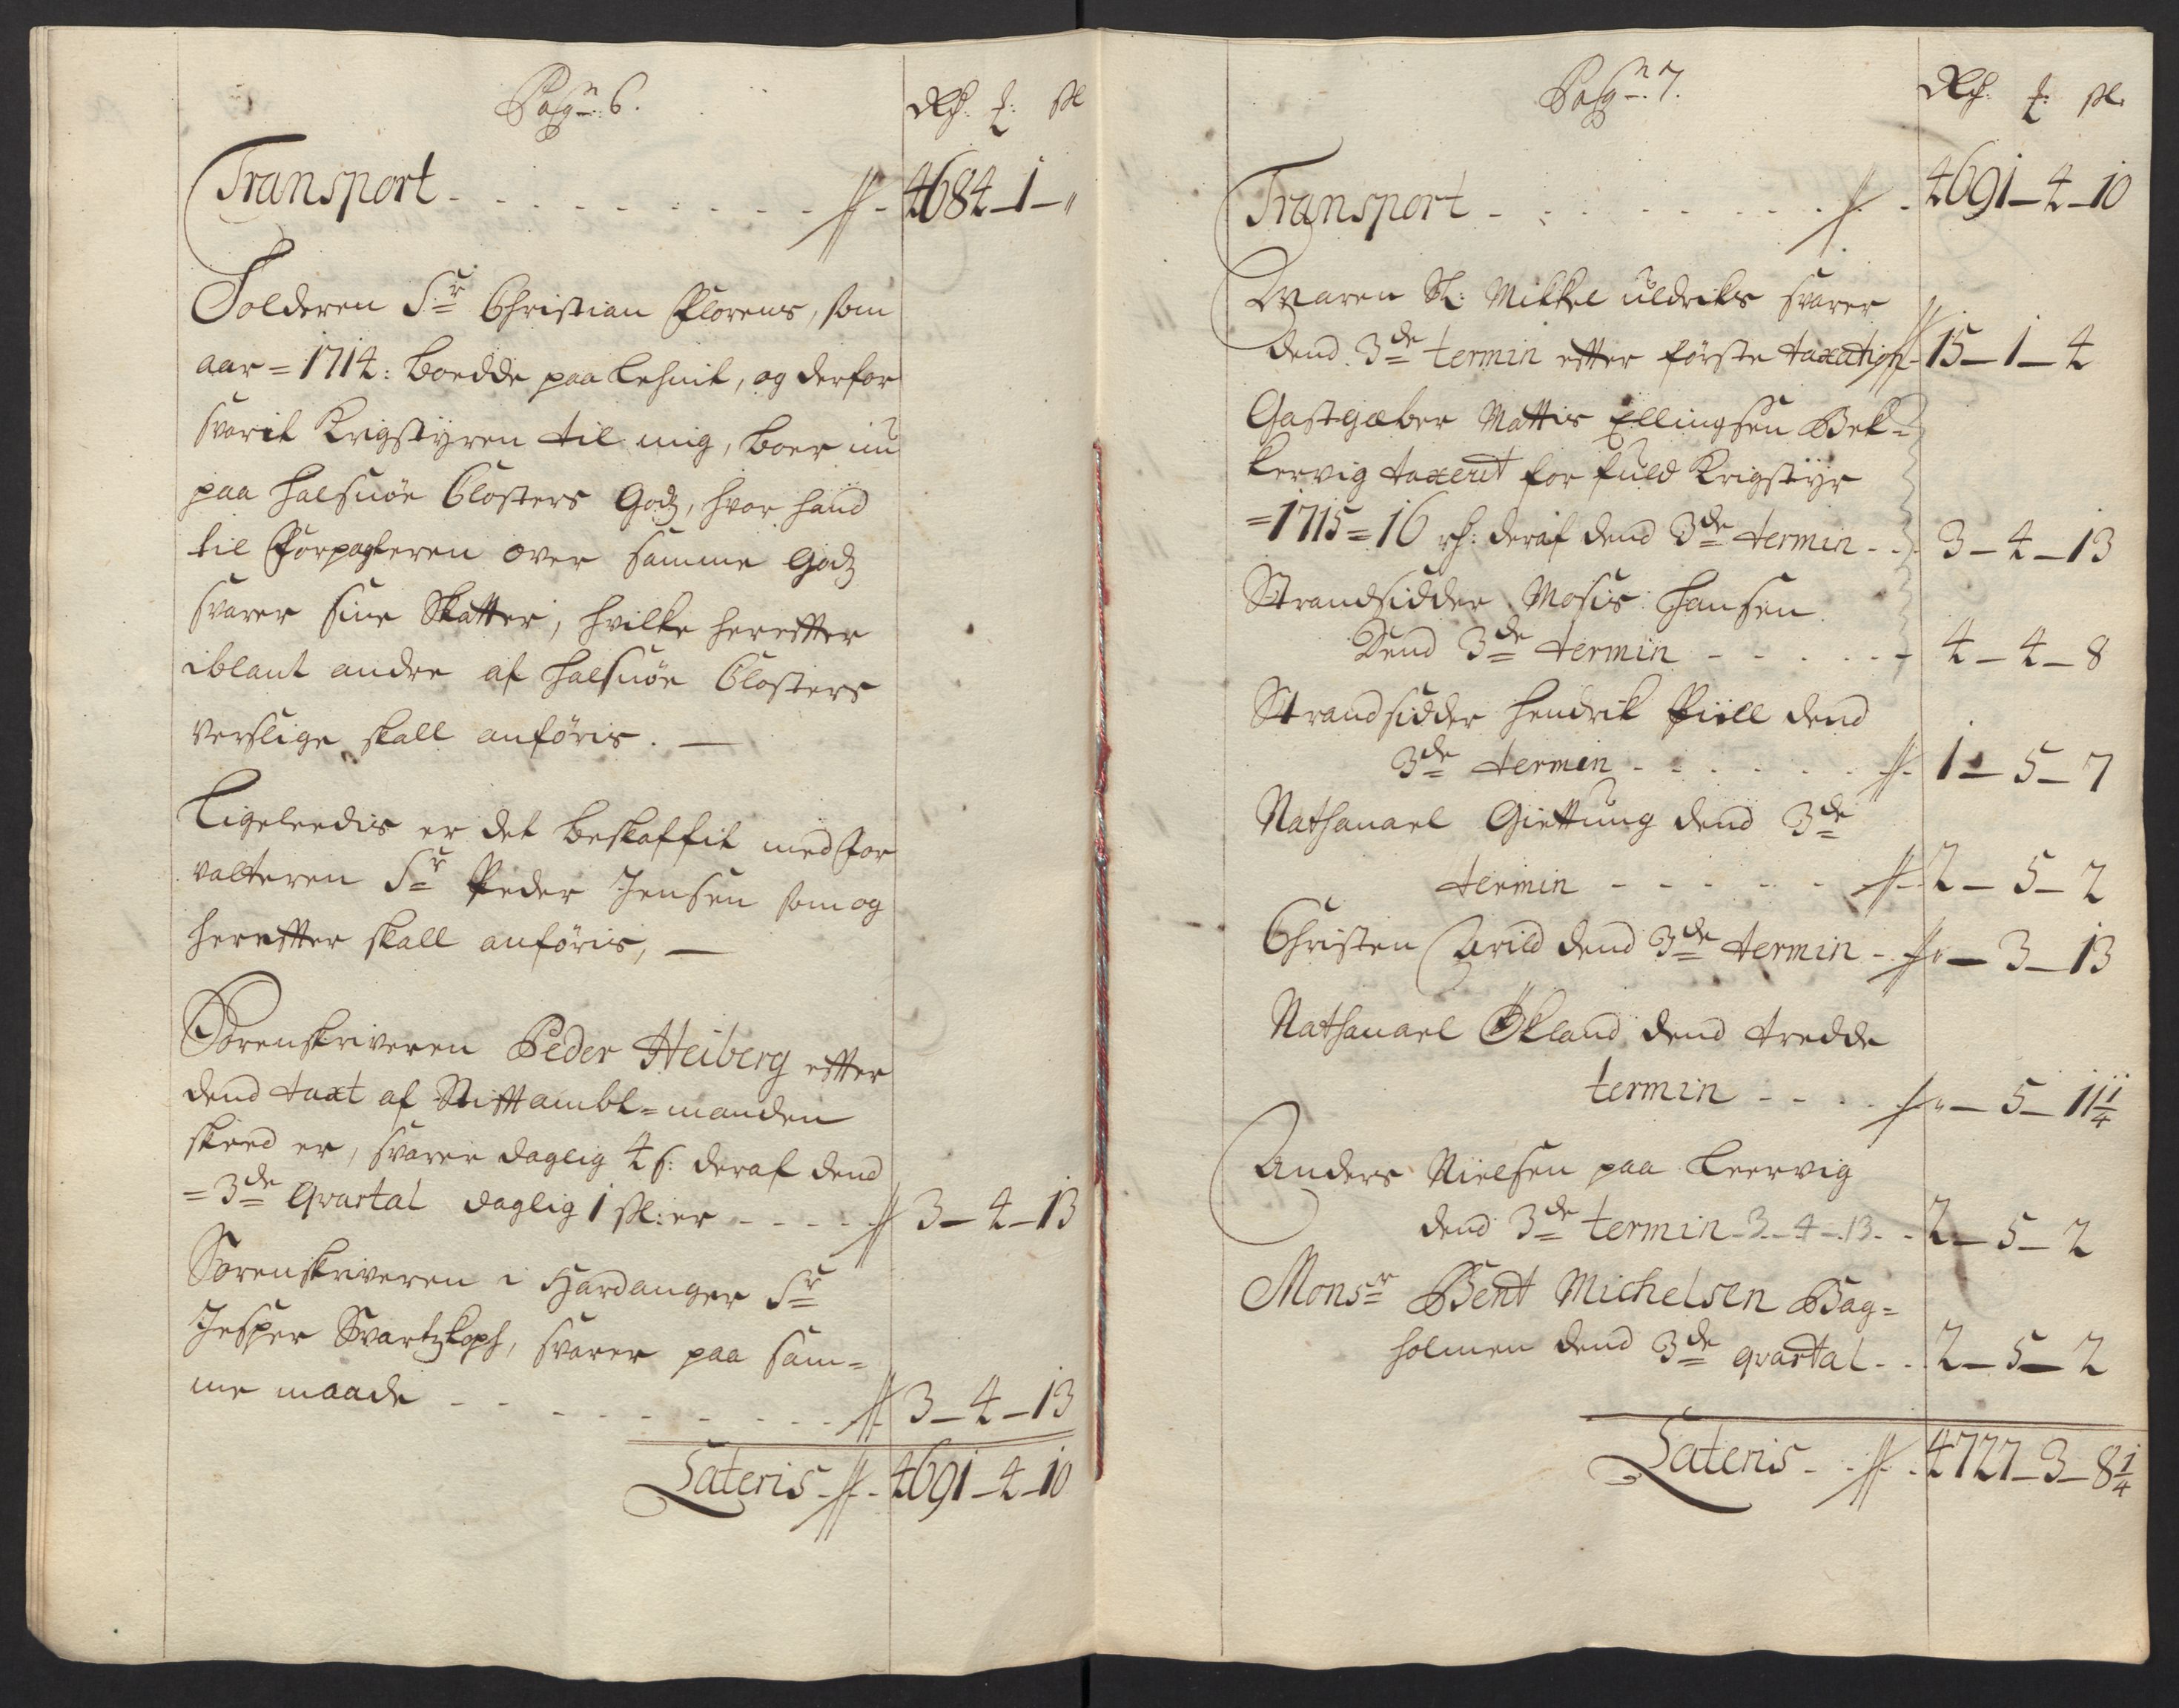 Pagn: 6.
Rdr. ƒ: sk
Transport - - - - - - - - - 4684 - 1 - "
Tolderen Sr Christian Florens, som
aar = 1714: boedde paa Lehnit, og derfor
svarit Krigstyren til mig, boer nu
paa Halsnöe Closters Godz, hvor hand
til Forpagteren over samme Godz
svarer sine Skatter, hvilke herefter
iblant andre af Halsnöe Closters
verslige skall anföris. —
Ligeleedis er det beskaffit med For
valteren Sr Peder Jensen som og
herefter skall anföris, —
Sorenskriveren Peder Heiberg efter
dend taxt af Stiftambt=manden
skeed er, svarer daglig 4 s: deraf dend
= 3de Qvartal daglig 1 sk: er - - - - 3 - 4 - 13
Sorenskriveren i Hardanger Sr
Jesper Svartzkoph, svarer paa sam=
me maade - - - - - - - - - 3 - 4 - 13
Lateris - - 4691 - 4 - 10
Pagn: 7.
Rdr. ƒ: sk.
Transport - - - - - - - - - 4691 - 4 - 10
Maren Sl: Mikkel Uldriks svarer
dend 3de termin efter förste taxation - 15 - 1 - 4
Gastgæber Mattis Ellingsen Bek=
kervig taxerit for fuld Krigstyr
= 1715 = 16 rh: deraf dend 3de termin - - 3 - 4 - 13
Strandsidder Mosis Hansen
Dend 3de termin - - - - - - 4 - 4 - 8
Strandsidder Hendrik Piill dend
3de termin - - - - - - - 1 - 5 - 7
Nathanael Giettung dend 3de
termin - - - - - - 2 - 5 - 2
Christen Arild dend 3de termin - - " - 3 - 13
Nathanael Økland dend tredde
termin - - - - - " - 5 - 11 1/4
Anders Nielsen paa Leervig
dend 3de termin - 3 - 4 - 13 - - 2 - 5 - 2
Monsr Bent Michelsen Bag=
holmen dend 3de qvartal - - 2 - 5 - 2
Lateris - - - 4727 - 3 - 8 1/4